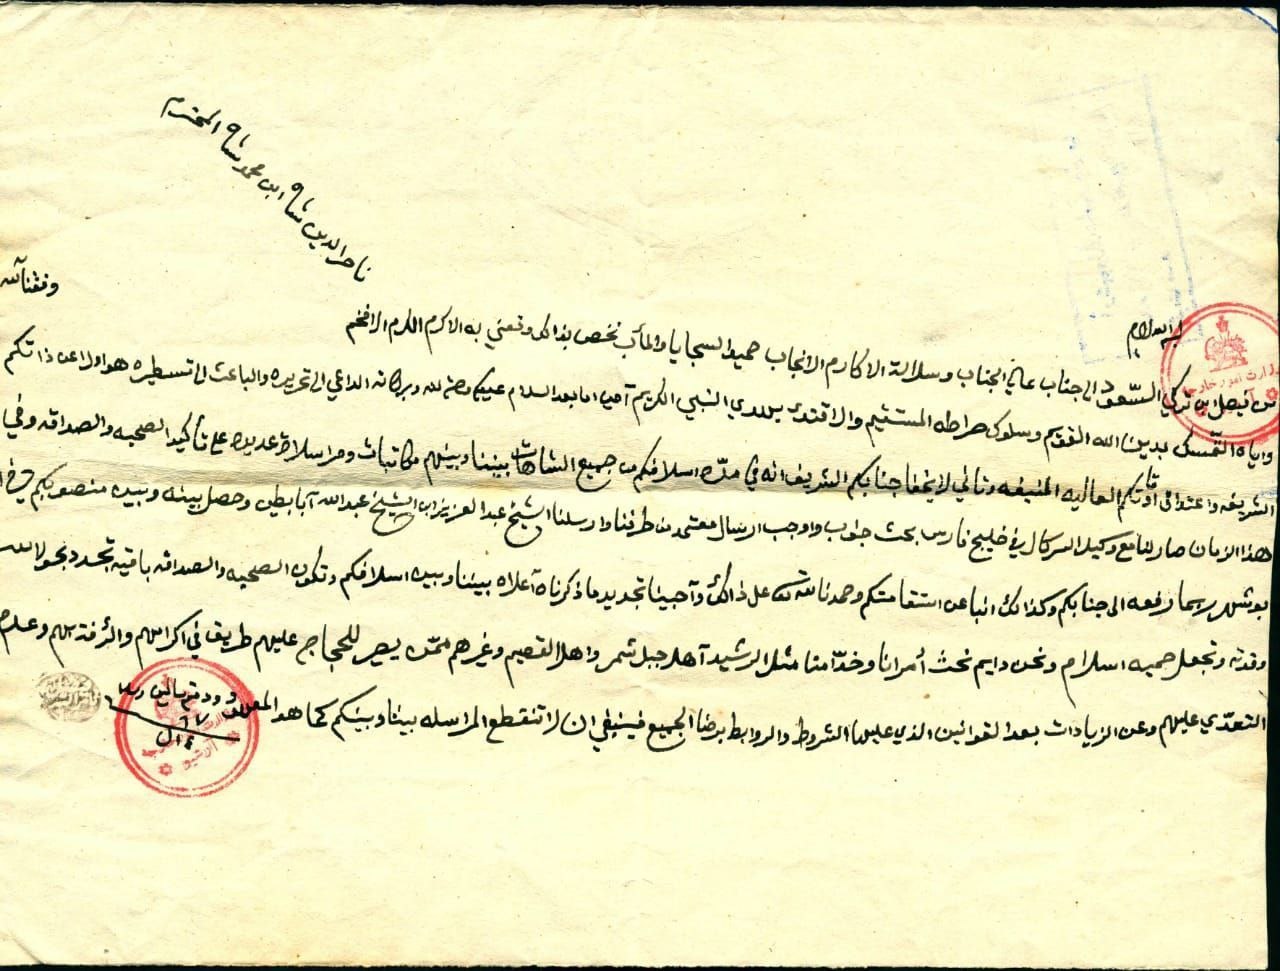 ناصر الدين شاه ابن محمد شاه المحترم
وفقنا الله
من فيصل ابن تركي السعود الى جناب عالي الجناب وسلالة الاكارم الانجاب حميد السجايا والمآب نخص بذالك ونعني به الاكرم المكرم الافخم
واياه التمسك بدين الله القويم وسلوك صراطه المستقيم والاقتدى بهدي النبي الكريم آمين اما بعد السلام عليكم ورحمة الله وبركاته الداعي الى تحريره والباعث الى تسطيره هو اولا عن ذاتكم
الشريفه واعتدال اوقاتكم العاليه المنيفه وثاني لا يخفا جنابكم الشريف انه في مدة اسلافكم من جميع الشاهات بيننا وبينهم مكاتبات ومراسلات عديده على تأكيد الصحبه والصداقه وفي
هذا الزمان صار لنا مع وكيل السركال في خليج فارس بحث جنوب واوجب ارسال معتمد من طرفنا وارسلنا الشيخ عبد العزيز ابن الشيخ عبد الله آبابطين وحصل بينه وبين منصوبكم في
بوشهر رفعه الى جنابكم وكذالك انبا عن استقامتكم وحمدنا الله على ذالك وآحبينا تجديد ما ذكرناه آعلاه بيننا وبين اسلافكم وتكون الصحبه والصداقه باقيه تجدد بحول الله
وقوته وتجعل حميه اسلام ونحن دايم نحث أمرانا وخدّامنا مثل الرشيد آهل جبل شمر واهل القصيم وغيرهم ممن يصير للحجاج عليهم طريق في اكرامهم والرفقه بهم وعدم
التعدّي عليهم وعن الزيادات بعد القوانين الذي عليها الشروط والروابط برضا الجميع فينبغي ان لا تنقطع المراسله بيننا وبينكم كما هو المعروف ودمتم سالمين
وزارت امور خارجه
آرشيو